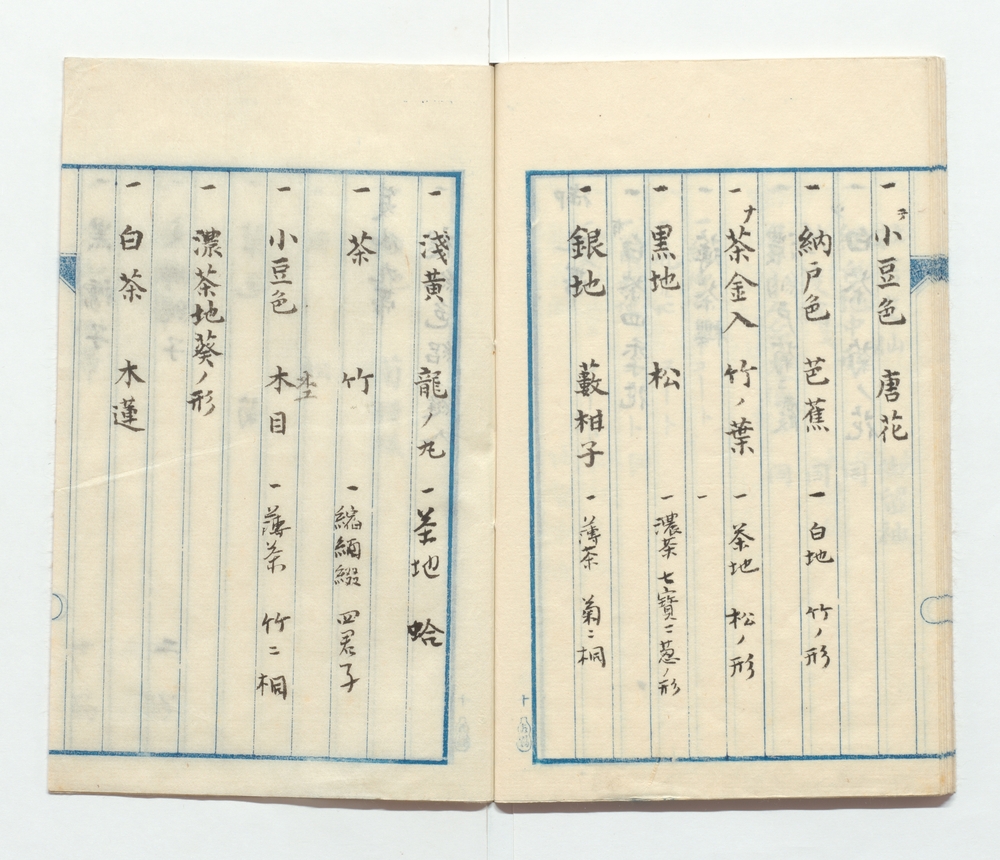 一 小豆色 唐花
一 納戸色 芭蕉 一 白地 竹ノ形
一 茶金入 竹ノ葉 一 茶地 松ノ形
一
一 黒地 松 一 濃茶 七寳ニ葱ノ形
一 銀地 藪柑子 一 薄茶 菊ニ桐
一 淺黄 龍ノ丸 一 茶地 蛤
一 茶 竹 一 縮緬綴 四君子
一 小豆色 木目 一 薄茶 竹ニ桐
一 濃茶地葵ノ形
一 白茶 木蓮